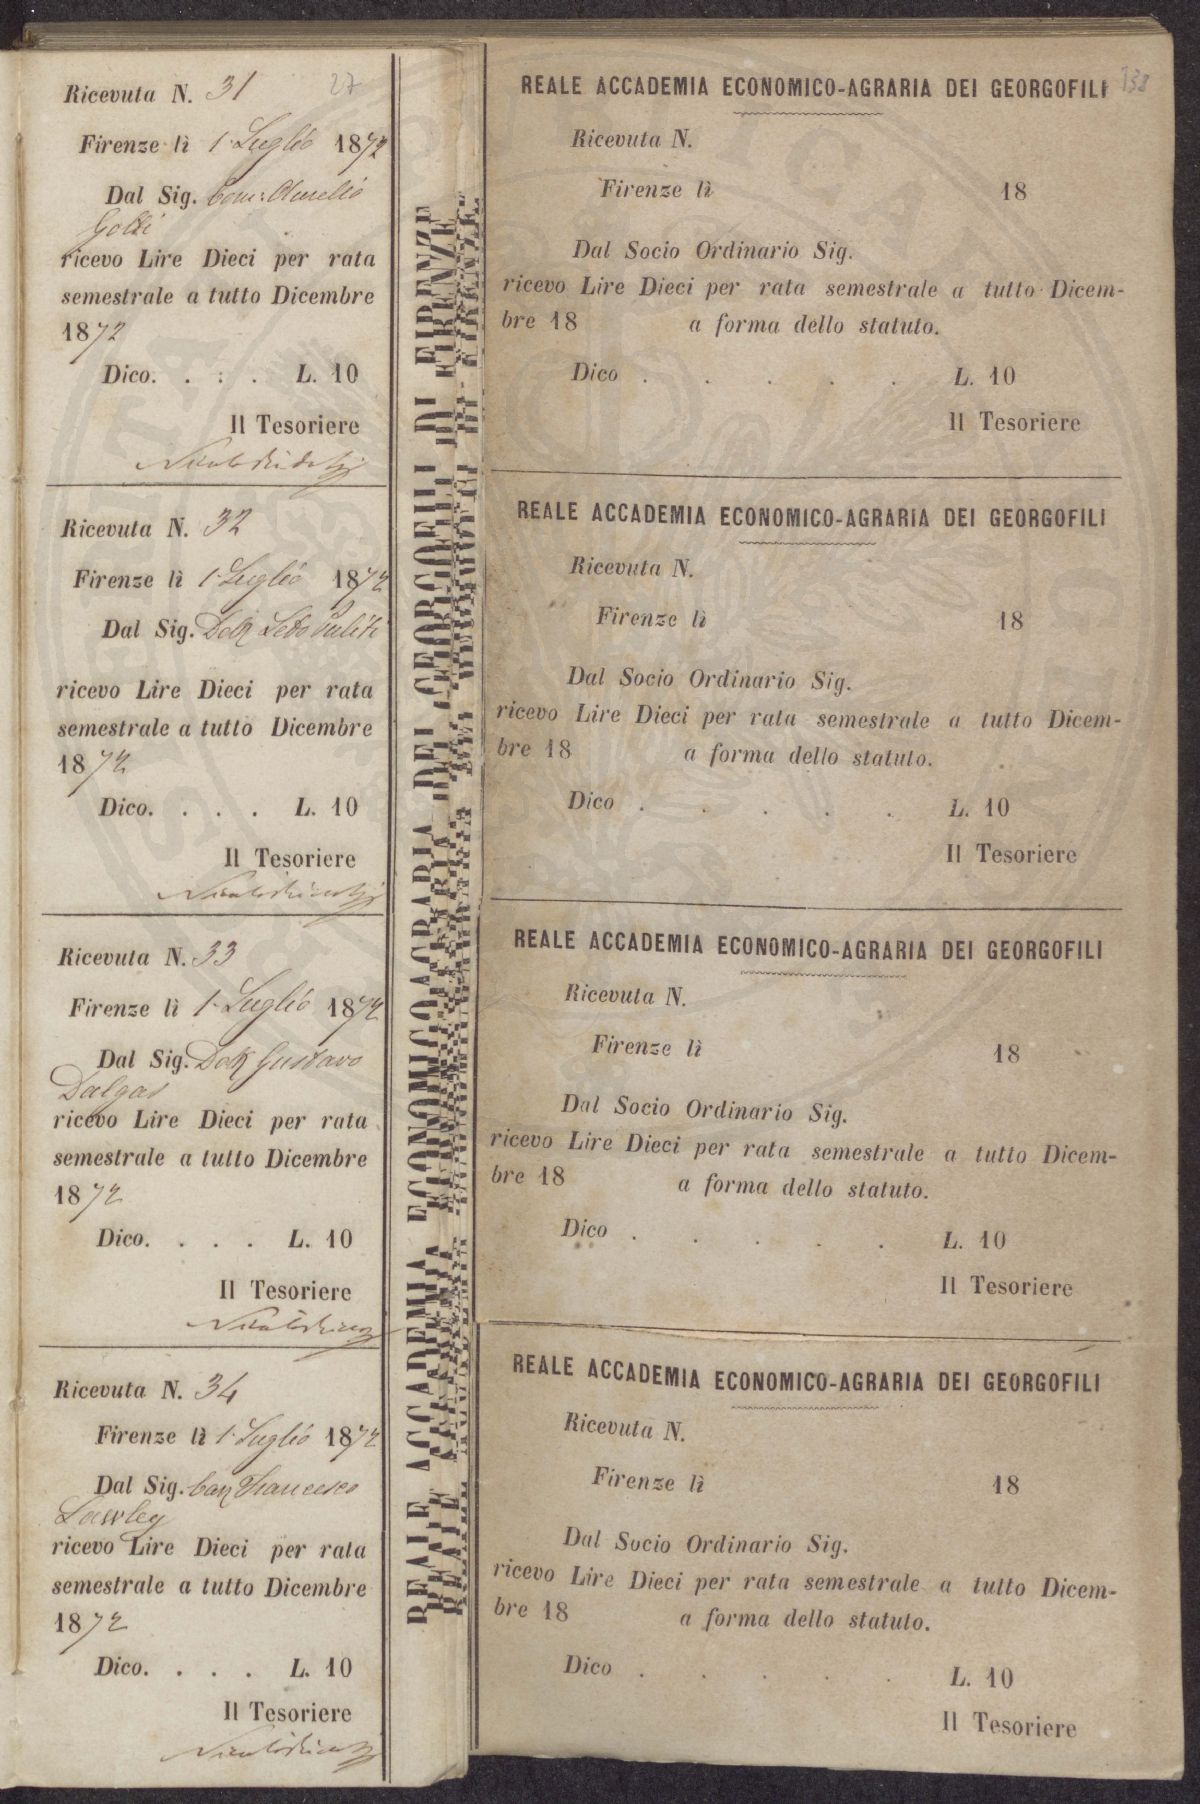 Ricevuta N. 31
27
Firenze lì 1. Luglio 1872
Dal Sig. Com: Aurelio
Gotti
ricevo Lire Dieci per rata
semestrale a tutto Dicembre
1872
Dico. . . . L. 10
Il Tesoriere
Ricevuta N. 32
Firenze lì 1. Luglio 1872
Dal Sig. Dott
ricevo Lire Dieci per rata
semestrale a tutto Dicembre
1872
Dico. . . . L. 10
Il Tesoriere
Ricevuta N. 33
Firenze lì 1. Luglio 1872
Dal Sig. Dott Gustavo
Dalgas
ricevo Lire Dieci per rata
semestrale a tutto Dicembre
1872
Dico. . . . L. 10
Il Tesoriere
Ricevuta N. 34
Firenze lì 1. Luglio 1872
Dal Sig. Cav Francesco
Lawley
ricevo Lire Dieci per rata
semestrale a tutto Dicembre
1872
Dico. . . . L. 10
Il Tesoriere
REALE ACCADEMIA ECONOMICO-AGRARIA DEI GEORGOFILI DI FIRENZE
REALE ACCADEMIA ECONOMICO-AGRARIA DEI GEORGOFILI
138
Ricevuta N.
Firenze lì 18
Dal Socio Ordinario Sig.
ricevo Lire Dieci per rata semestrale a tutto Dicem-
bre 18 a forma dello statuto.
Dico . . . . . L. 10
Il Tesoriere
REALE ACCADEMIA ECONOMICO-AGRARIA DEI GEORGOFILI
Ricevuta N.
Firenze lì 18
Dal Socio Ordinario Sig.
ricevo Lire Dieci per rata semestrale a tutto Dicem-
bre 18 a forma dello statuto.
Dico . . . . . L. 10
Il Tesoriere
REALE ACCADEMIA ECONOMICO-AGRARIA DEI GEORGOFILI
Ricevuta N.
Firenze lì 18
Dal Socio Ordinario Sig.
ricevo Lire Dieci per rata semestrale a tutto Dicem-
bre 18 a forma dello statuto.
Dico . . . . . L. 10
Il Tesoriere
REALE ACCADEMIA ECONOMICO-AGRARIA DEI GEORGOFILI
Ricevuta N.
Firenze lì 18
Dal Socio Ordinario Sig.
ricevo Lire Dieci per rata semestrale a tutto Dicem-
bre 18 a forma dello statuto.
Dico . . . . . L. 10
Il Tesoriere